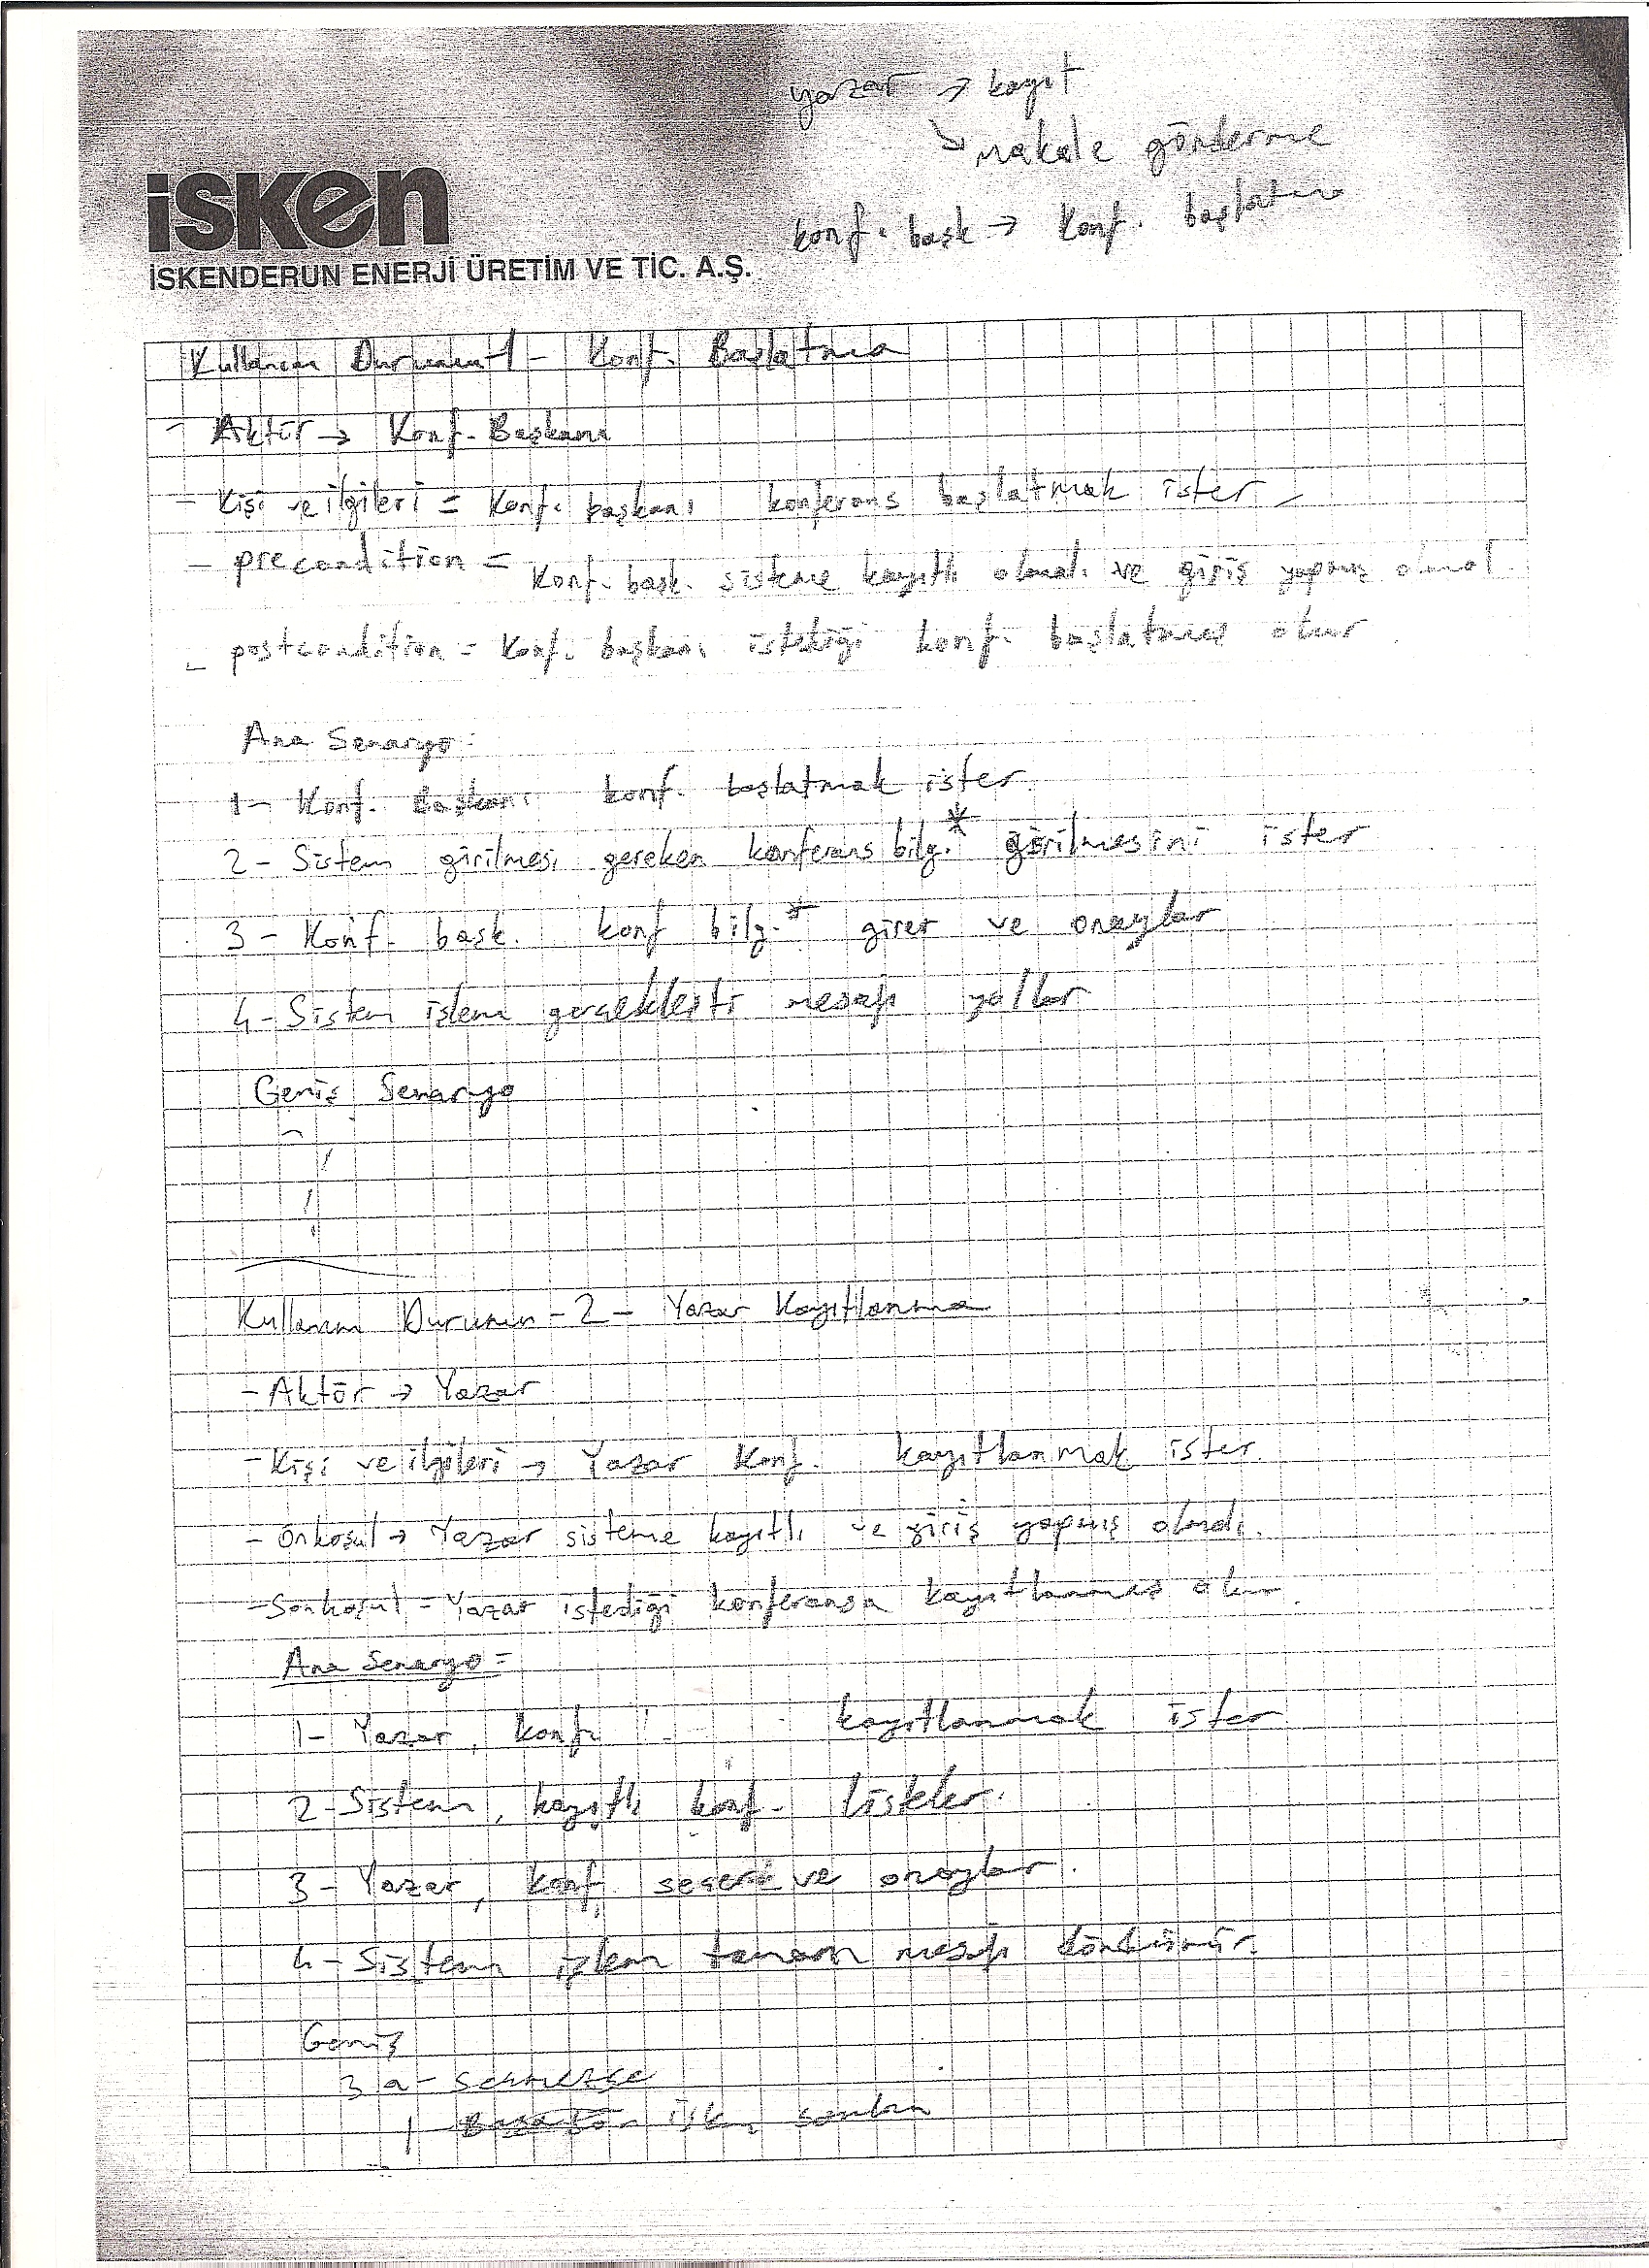 yazar → kayıt
↘ makale gönderme
konf. başk → konf. başlatma
isken
İSKENDERUN ENERJİ ÜRETİM VE TİC. A.Ş.
Kullanım Durumu-1 - Konf. Başlatma
- Aktör → Konf. Başkanı
- Kişi ve ilgileri = Konf. başkanı konferans başlatmak ister
- precondition = Konf. başk. sisteme kayıtlı olmalı ve giriş yapmış olmal
- postcondition = Konf. başkanı istediği konf. başlatmış olur.
Ana Senaryo:
1- Konf. Başkanı konf. başlatmak ister
2- Sistem girilmesi gereken konferans bilg.* girilmesini ister
3- Konf. başk. konf bilg.* girer ve onaylar
4- Sistem işlem gerçekleşti mesajı yollar
Geniş Senaryo
Kullanım Durumu-2- Yazar Kayıtlanma
- Aktör → Yazar
- Kişi ve ilgileri → Yazar Konf. kayıtlanmak ister.
- önkoşul → Yazar sisteme kayıtlı ve giriş yapmış olmalı.
- Sonkoşul = Yazar istediği konferansa kayıtlanmış olur.
Ana Senaryo =
1- Yazar, konf. kayıtlanmak ister
2- Sistem, kayıtlı konf. listeler.
3- Yazar, konf. seçer ve onaylar.
4- Sistem işlem tamam mesajı
Geniş
3a- seçmezse
1